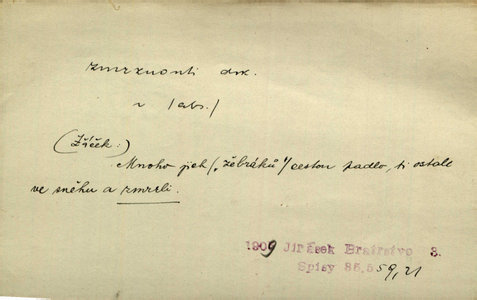 zmrznouti dok.
v /abs./
(Žáček:)
Mnoho jich (,žebráků'/ cestou padlo, ti ostali
ve sněhu a zmrzli.
1909 Jirásek Bratrstvo 3.
Spisy 25.559,21